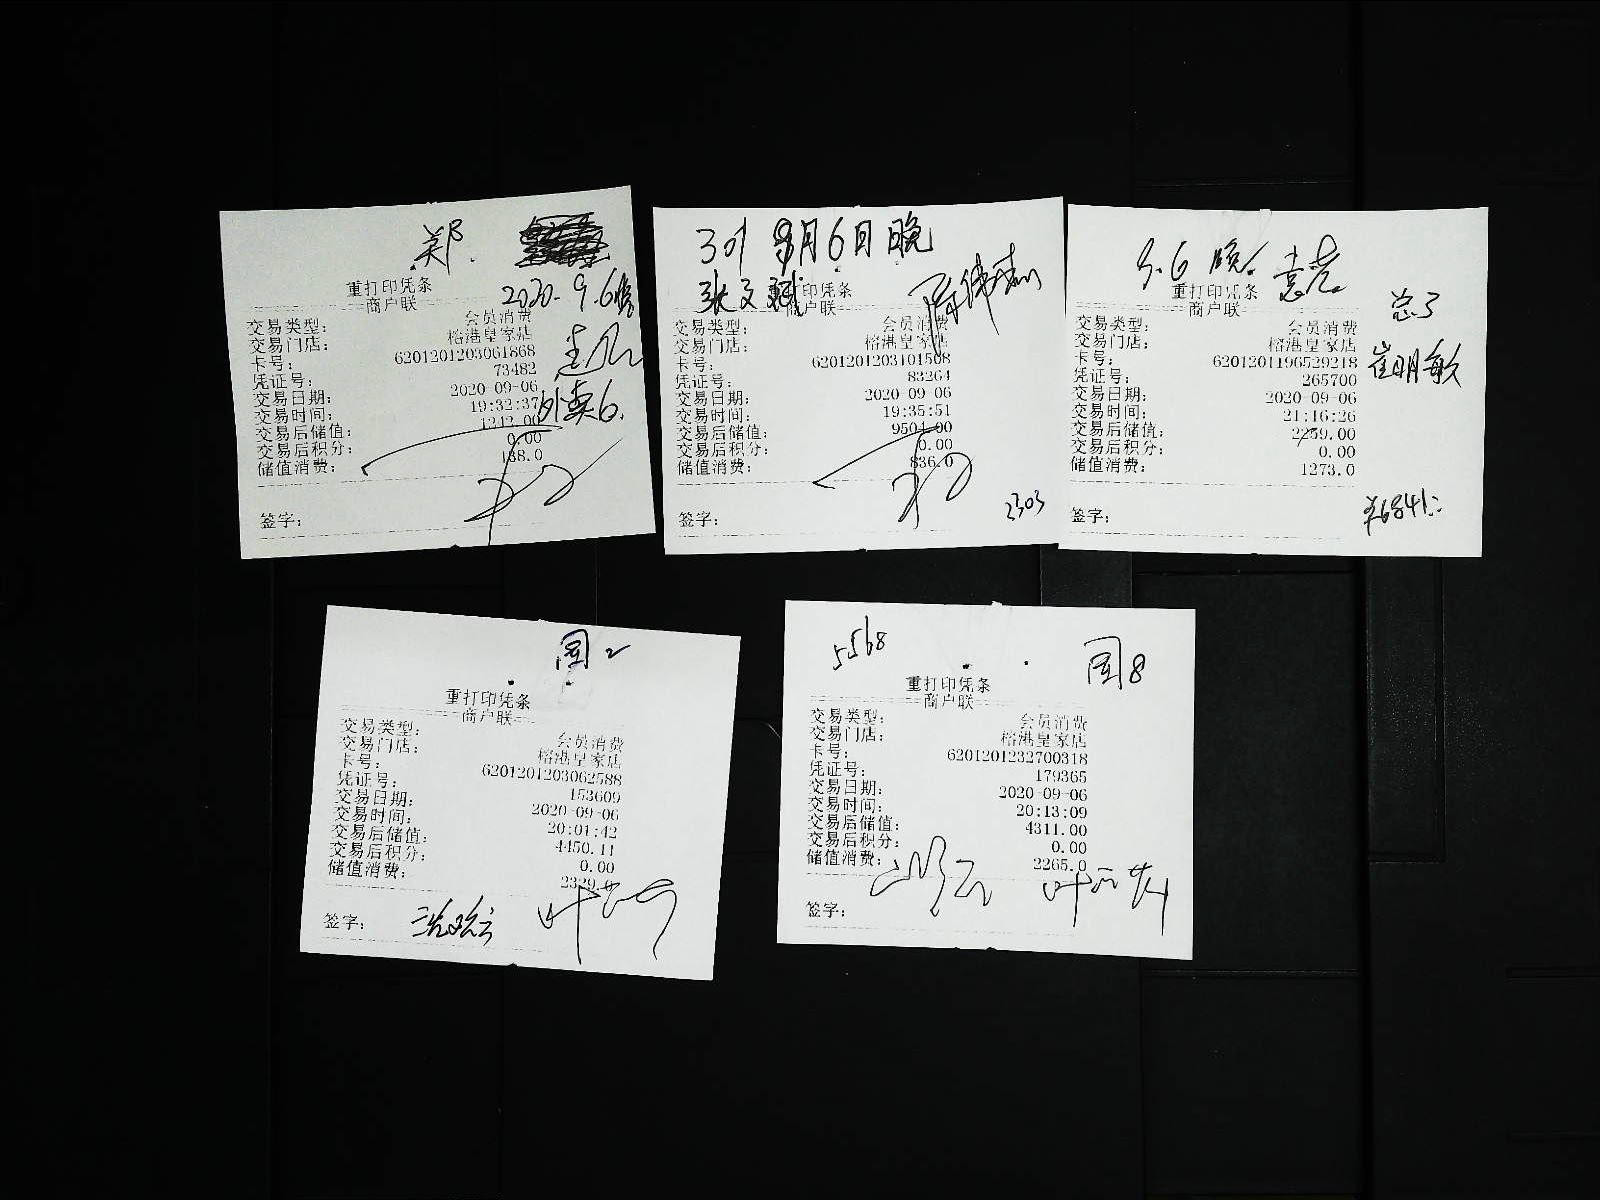 郑.
2020.9.6晚
重打印凭条
商户联
交易类型: 会员消费
交易门店: 榕港皇家店
卡号: 6201201203061868
凭证号: 73482
交易日期: 2020-09-06
交易时间: 19:32:37
外卖6.
交易后储值: 1212.00
交易后积分: 0.00
储值消费: 138.0
签字:
301 9月6日晚
张文斌
印凭条
商户联
交易类型: 会员消费
交易门店: 榕港皇家店
卡号: 6201201203101508
凭证号: 83264
交易日期: 2020-09-06
交易时间: 19:35:51
交易后储值: 9504.00
交易后积分: 0.00
储值消费: 836.0
2303
签字:
9.6晚.
重打印凭条
商户联
总3
交易类型: 会员消费
交易门店: 榕港皇家店
卡号: 6201201196529218
崔明敏
凭证号: 265700
交易日期: 2020-09-06
交易时间: 21:16:26
交易后储值: 2259.00
交易后积分: 0.00
储值消费: 1273.0
¥6841
签字:
国2
重打印凭条
商户联
交易类型: 会员消费
交易门店: 榕港皇家店
卡号: 6201201203062588
凭证号: 153609
交易日期: 2020-09-06
交易时间: 20:01:42
交易后储值: 4450.11
交易后积分: 0.00
储值消费:
签字:
5568
国8
重打印凭条
商户联
交易类型: 会员消费
交易门店: 榕港皇家店
卡号: 6201201232700318
凭证号: 179365
交易日期: 2020-09-06
交易时间: 20:13:09
交易后储值: 4311.00
交易后积分: 0.00
储值消费: 2265.0
签字: